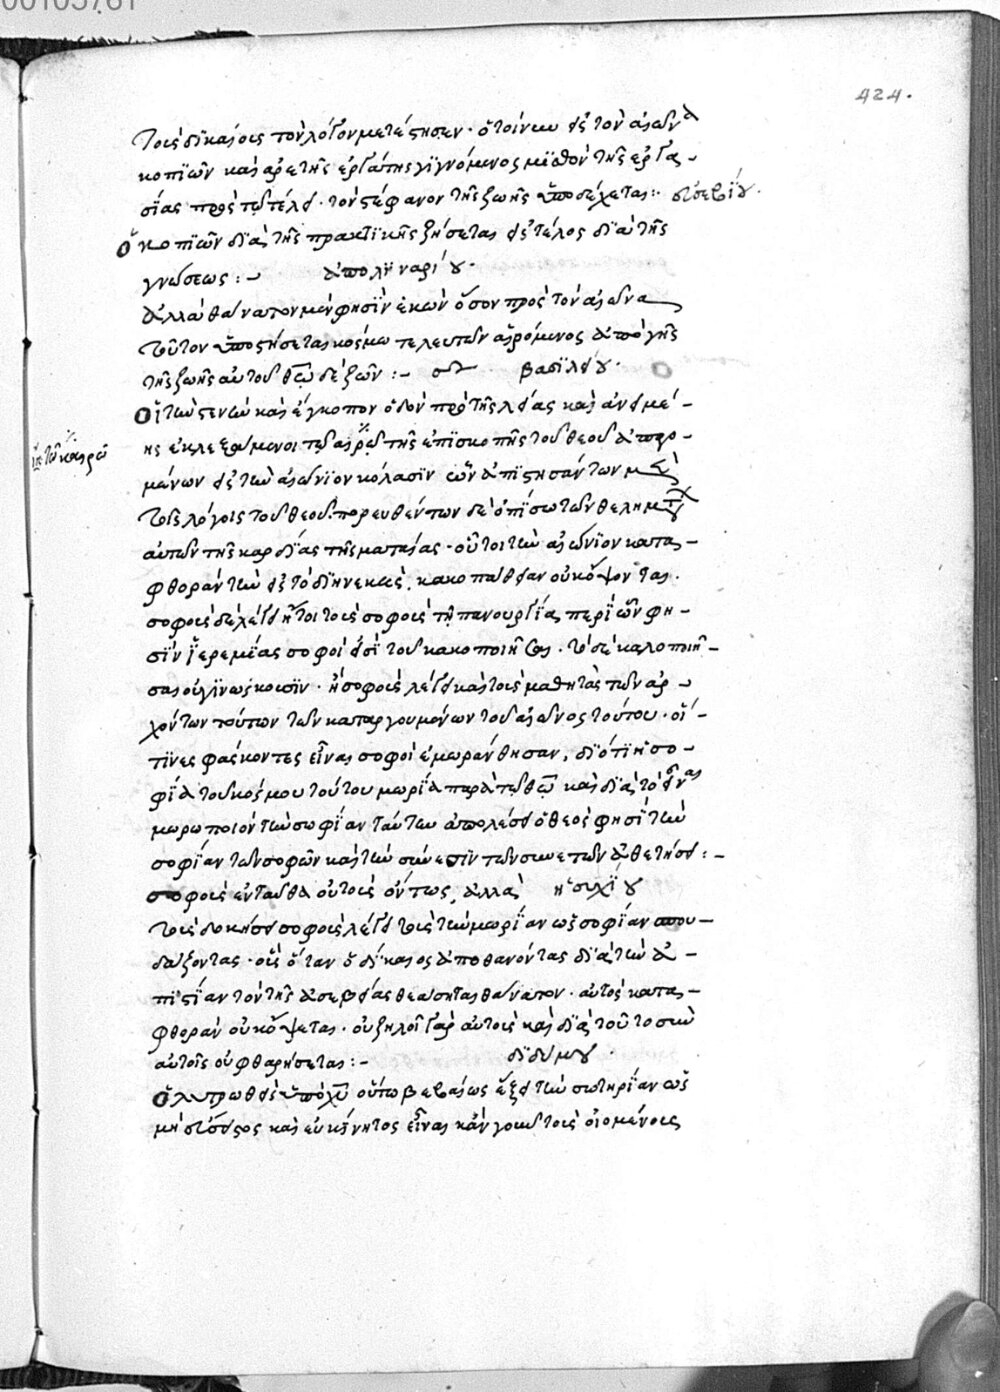 00105761
424.
τοῖς δικαίοις τὸν λόγον μετέστησεν· ὁ τοίνυν εἰς τὸν αἰῶνα
κοπιῶν καὶ ἀρετῆς ἐργάτης γιγνόμενος μισθὸν τῆς ἐργα-
σίας πρὸς τῷ τέλει τὸν στέφανον τῆς ζωῆς ὑποδέχεται: εὐσεβίου.
Ὁ κοπιῶν διὰ τῆς πρακτικῆς ζήσεται εἰς τέλος διὰ τῆς
γνώσεως:- ἀπολιναρίου.
ἀλλὰ θάνατον μέν φησιν ἑκὼν ὅσον πρὸς τὸν αἰῶνα
τοῦτον ὑποστήσεται κόσμω τελευτῶν αἰρόμενος ἀπὸ γῆς
τῆς ζωῆς αὐτοῦ θῶ δὲ ζῶν:- βασιλείου.
Οἱ τὴν στενὴν καὶ ἔγκοπον ὁδὸν πρὸ τῆς λείας καὶ ἀνειμέ-
νης ἐκλεξάμενοι τῷ καιρῷ τῆς ἐπισκοπῆς τοῦ θεοῦ ἀπαγο-
μένων εἰς τὴν αἰώνιον κόλασιν τῶν ἀπιστησάντων μὲν
τοῖς λόγοις τοῦ θεοῦ, πορευθέντων δὲ ὀπίσω τῶν θελημάτων
αὐτῶν τῆς καρδίας τῆς ματαίας· οὗτοι τὴν αἰώνιον κατα-
φθορὰν τὴν εἰς τὸ διηνεκὲς, κακοπάθειαν οὐκ ὄψονται.
σοφοὺς δὲ λέγει ἤτοι τοὺς σοφοὺς τῇ πανουργίᾳ περὶ ὧν φη-
σὶν ἱερεμίας σοφοί εἰσι τοῦ κακοποιῆσαι· τὸ δὲ καλοποιῆ-
σαι οὐ γινώσκουσιν· ἢ σοφοὺς λέγει καὶ τοὺς μαθητὰς τῶν ἀρ-
χόντων τούτων τῶν καταργουμένων τοῦ αἰῶνος τούτου· οἵ-
τινες φάσκοντες εἶναι σοφοὶ ἐμωράνθησαν, διότι ἡ σο-
φία τοῦ κόσμου τούτου μωρία παρὰ τῷ θῶ καὶ διὰ τὸ εἶναι
μωροποιὸν τὴν σοφίαν ταύτην ἀπολέσει ὁ θεὸς φησὶ τὴν
σοφίαν τῶν σοφῶν καὶ τὴν σύνεσιν τῶν συνετῶν ἀθετήσει:-
σοφοὺς ἐνταῦθα οὐ τοὺς ὄντως, ἀλλὰ ἡσυχίου
τοὺς δοκήσει σοφοὺς λέγει τοὺς τὴν μωρίαν ὡς σοφίαν σπου-
δάζοντας· οὓς ὅταν ὁ δίκαιος ἀποθανόντας διὰ τὴν ἀ-
πιστίαν τὸν τῆς ἀσεβείας θεάσηται θάνατον· αὐτὸς κατα-
φθορὰν οὐκ ὄψεται· οὐ ζηλοῖ γὰρ αὐτοὺς καὶ διὰ τοῦτο σὺν
αὐτοῖς οὐ φθαρήσεται:- διδύμου.
Ὁ λυτρωθεὶς ὑπὸ χῦ οὕτω βεβαίως ἕξει τὴν σωτηρίαν ὡς
μὴ εὔσειστος καὶ εὐκίνητος εἶναι κἂν γοῦν τοῖς οἰομένοις